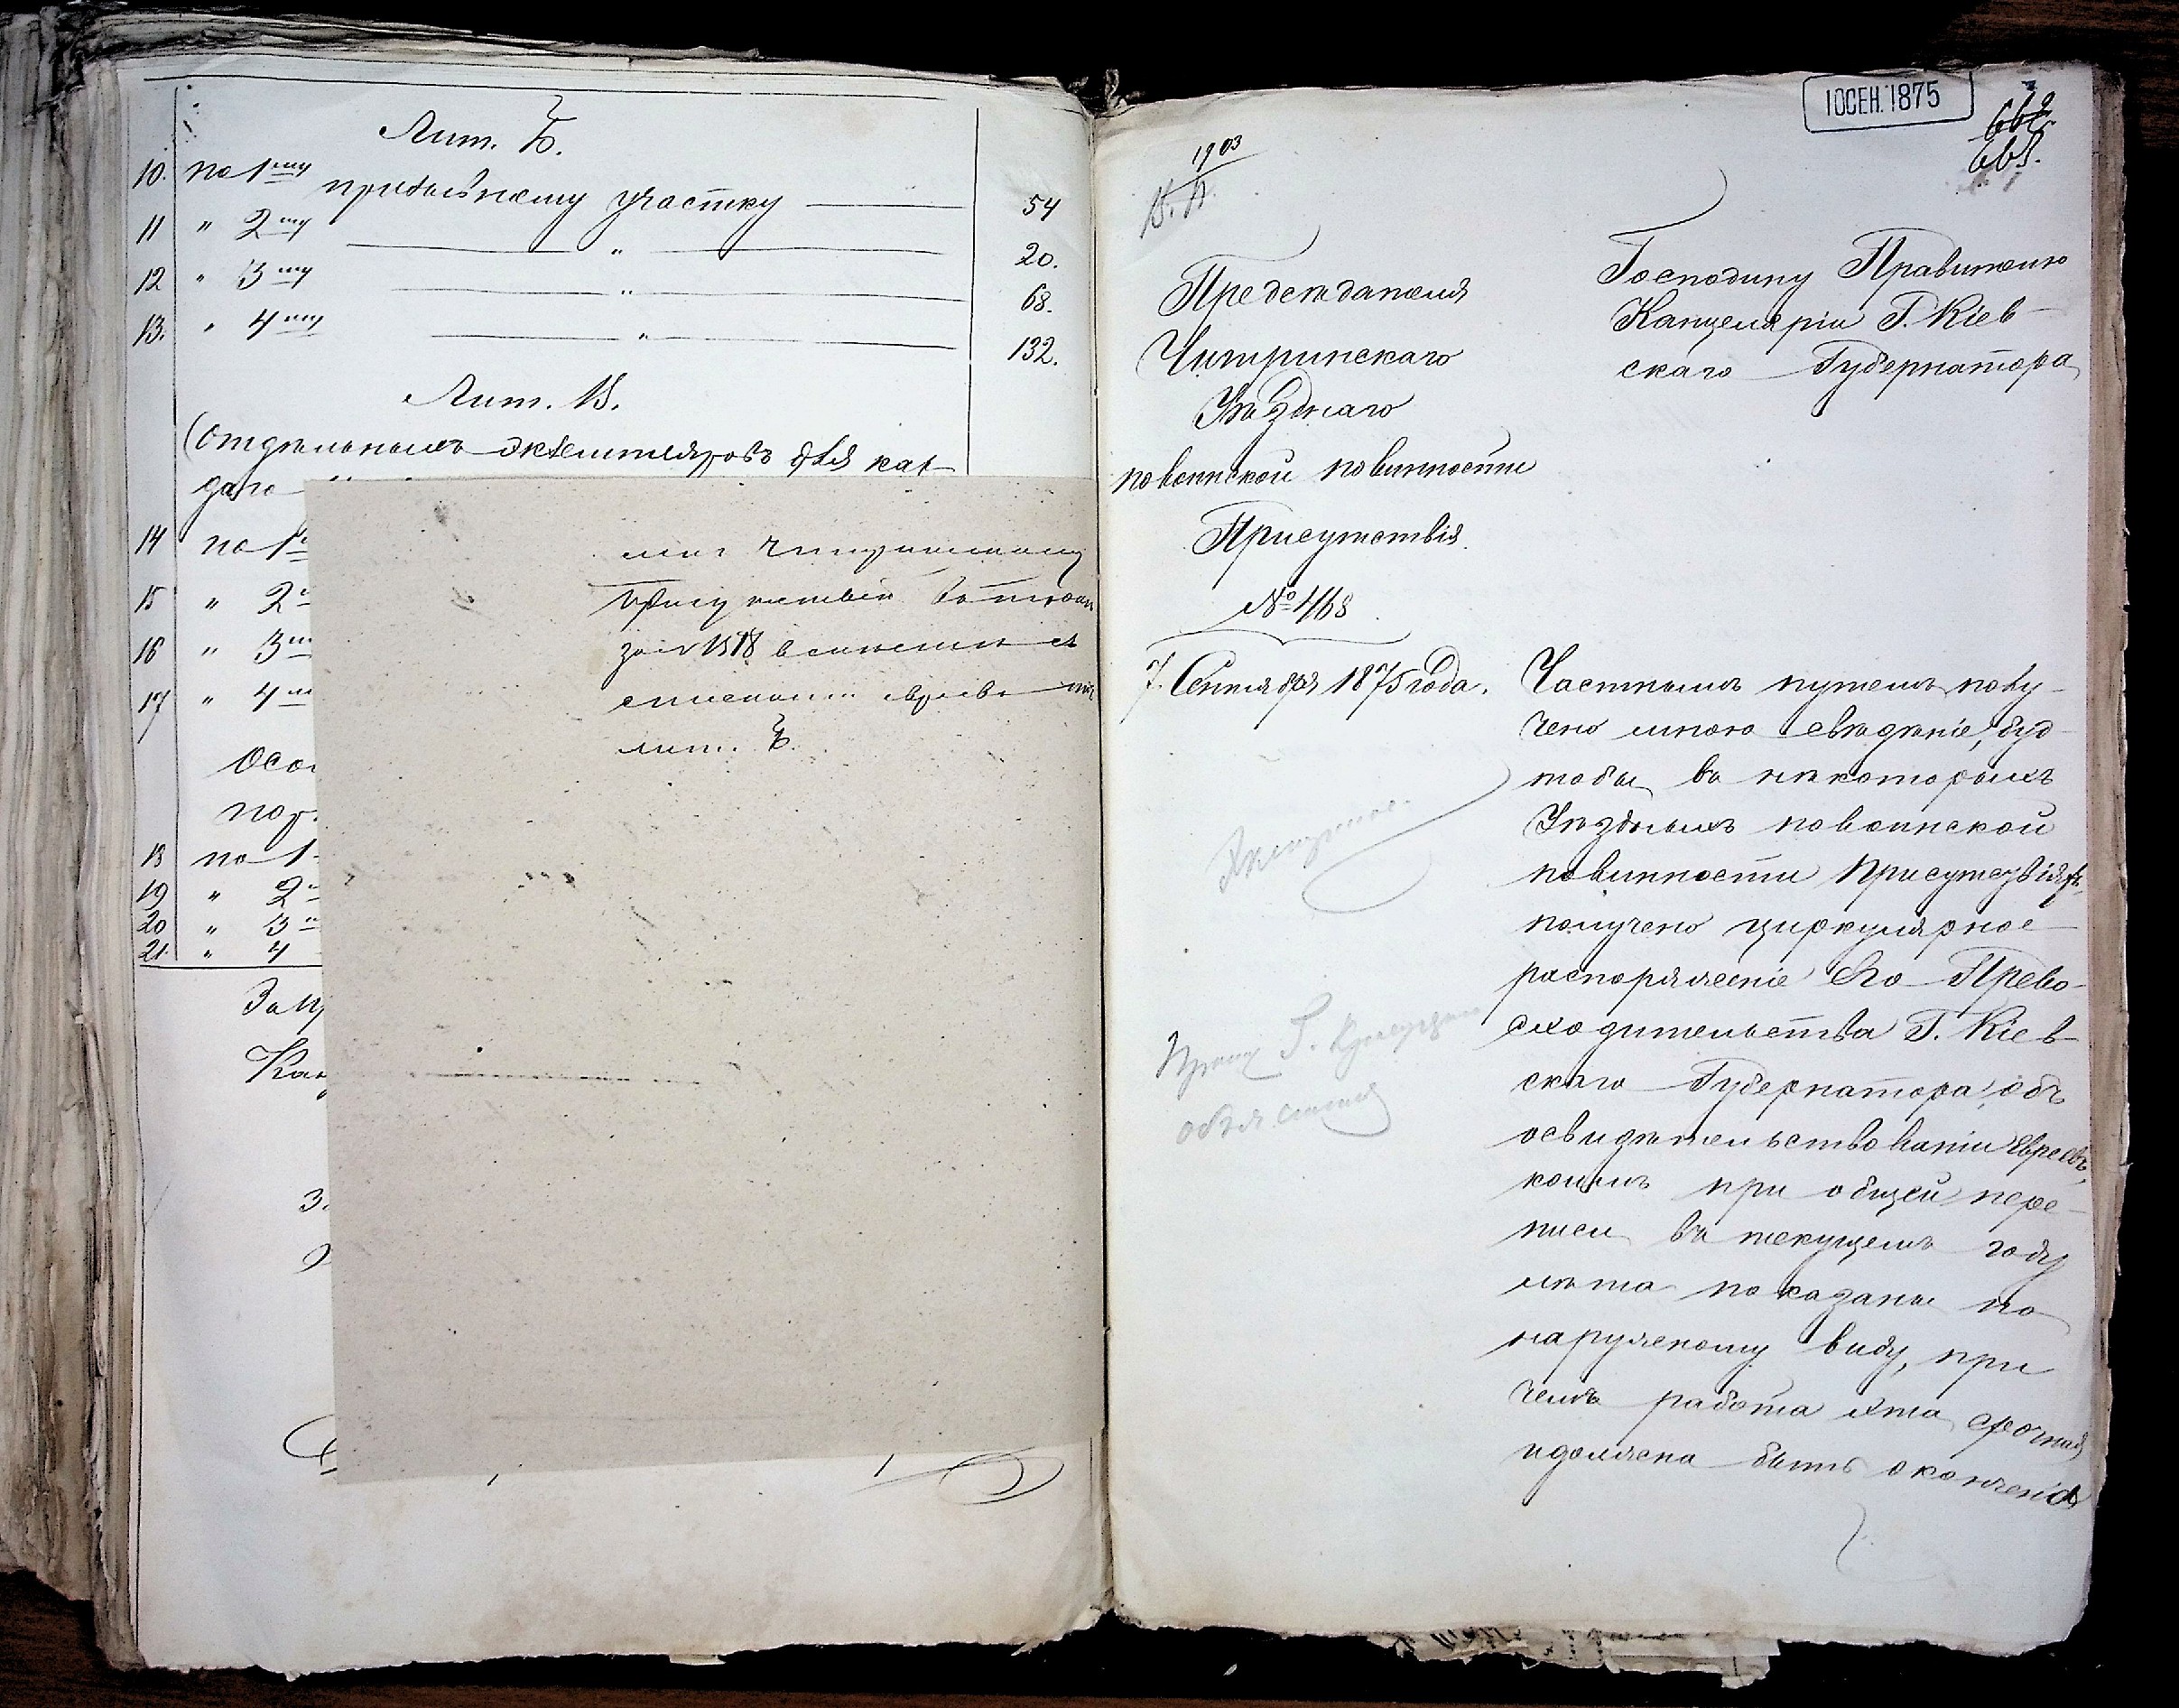 Лит. Б.
10. по 1му призывному участку 54
11 " 2му " 20.
12 " 3му " 68.
13. " 4му " 132.
Лит. В.
(отдѣльныхъ экземпляровъ для каж-
даго
14 по 1
15 " 2
16 " 3
17 " 4
Осо
пор
18 по 1
19 " 2
20 " 3
21. " 4
За
Кан
Присутствію
1518
лит. Б.
10 СЕН. 1875
1903
В. П.
662
668.
Предсѣдателя
Чигринскаго
Уѣзднаго
по воинской повинности
Присутствія
№ 468
7. Сентября 1875 года.
Господину Правителю
Канцеляріи Г. Кіев-
скаго Губернатора
Частнымъ путемъ полу-
чено мною свѣдѣніе, буд-
то бы въ нѣкоторыхъ
Уѣздныхъ по воинской
повинности Присутствіяхъ,
получено циркулярное
распоряженіе Его Прево-
сходительства Г. Кіев-
скаго Губернатора, объ
освидѣтельствованіи Евреевъ,
коимъ при общей пере-
писи въ текущемъ году
лѣта показаны по
наружному виду, при
чемъ работа эта срочная
и должна быть окончена